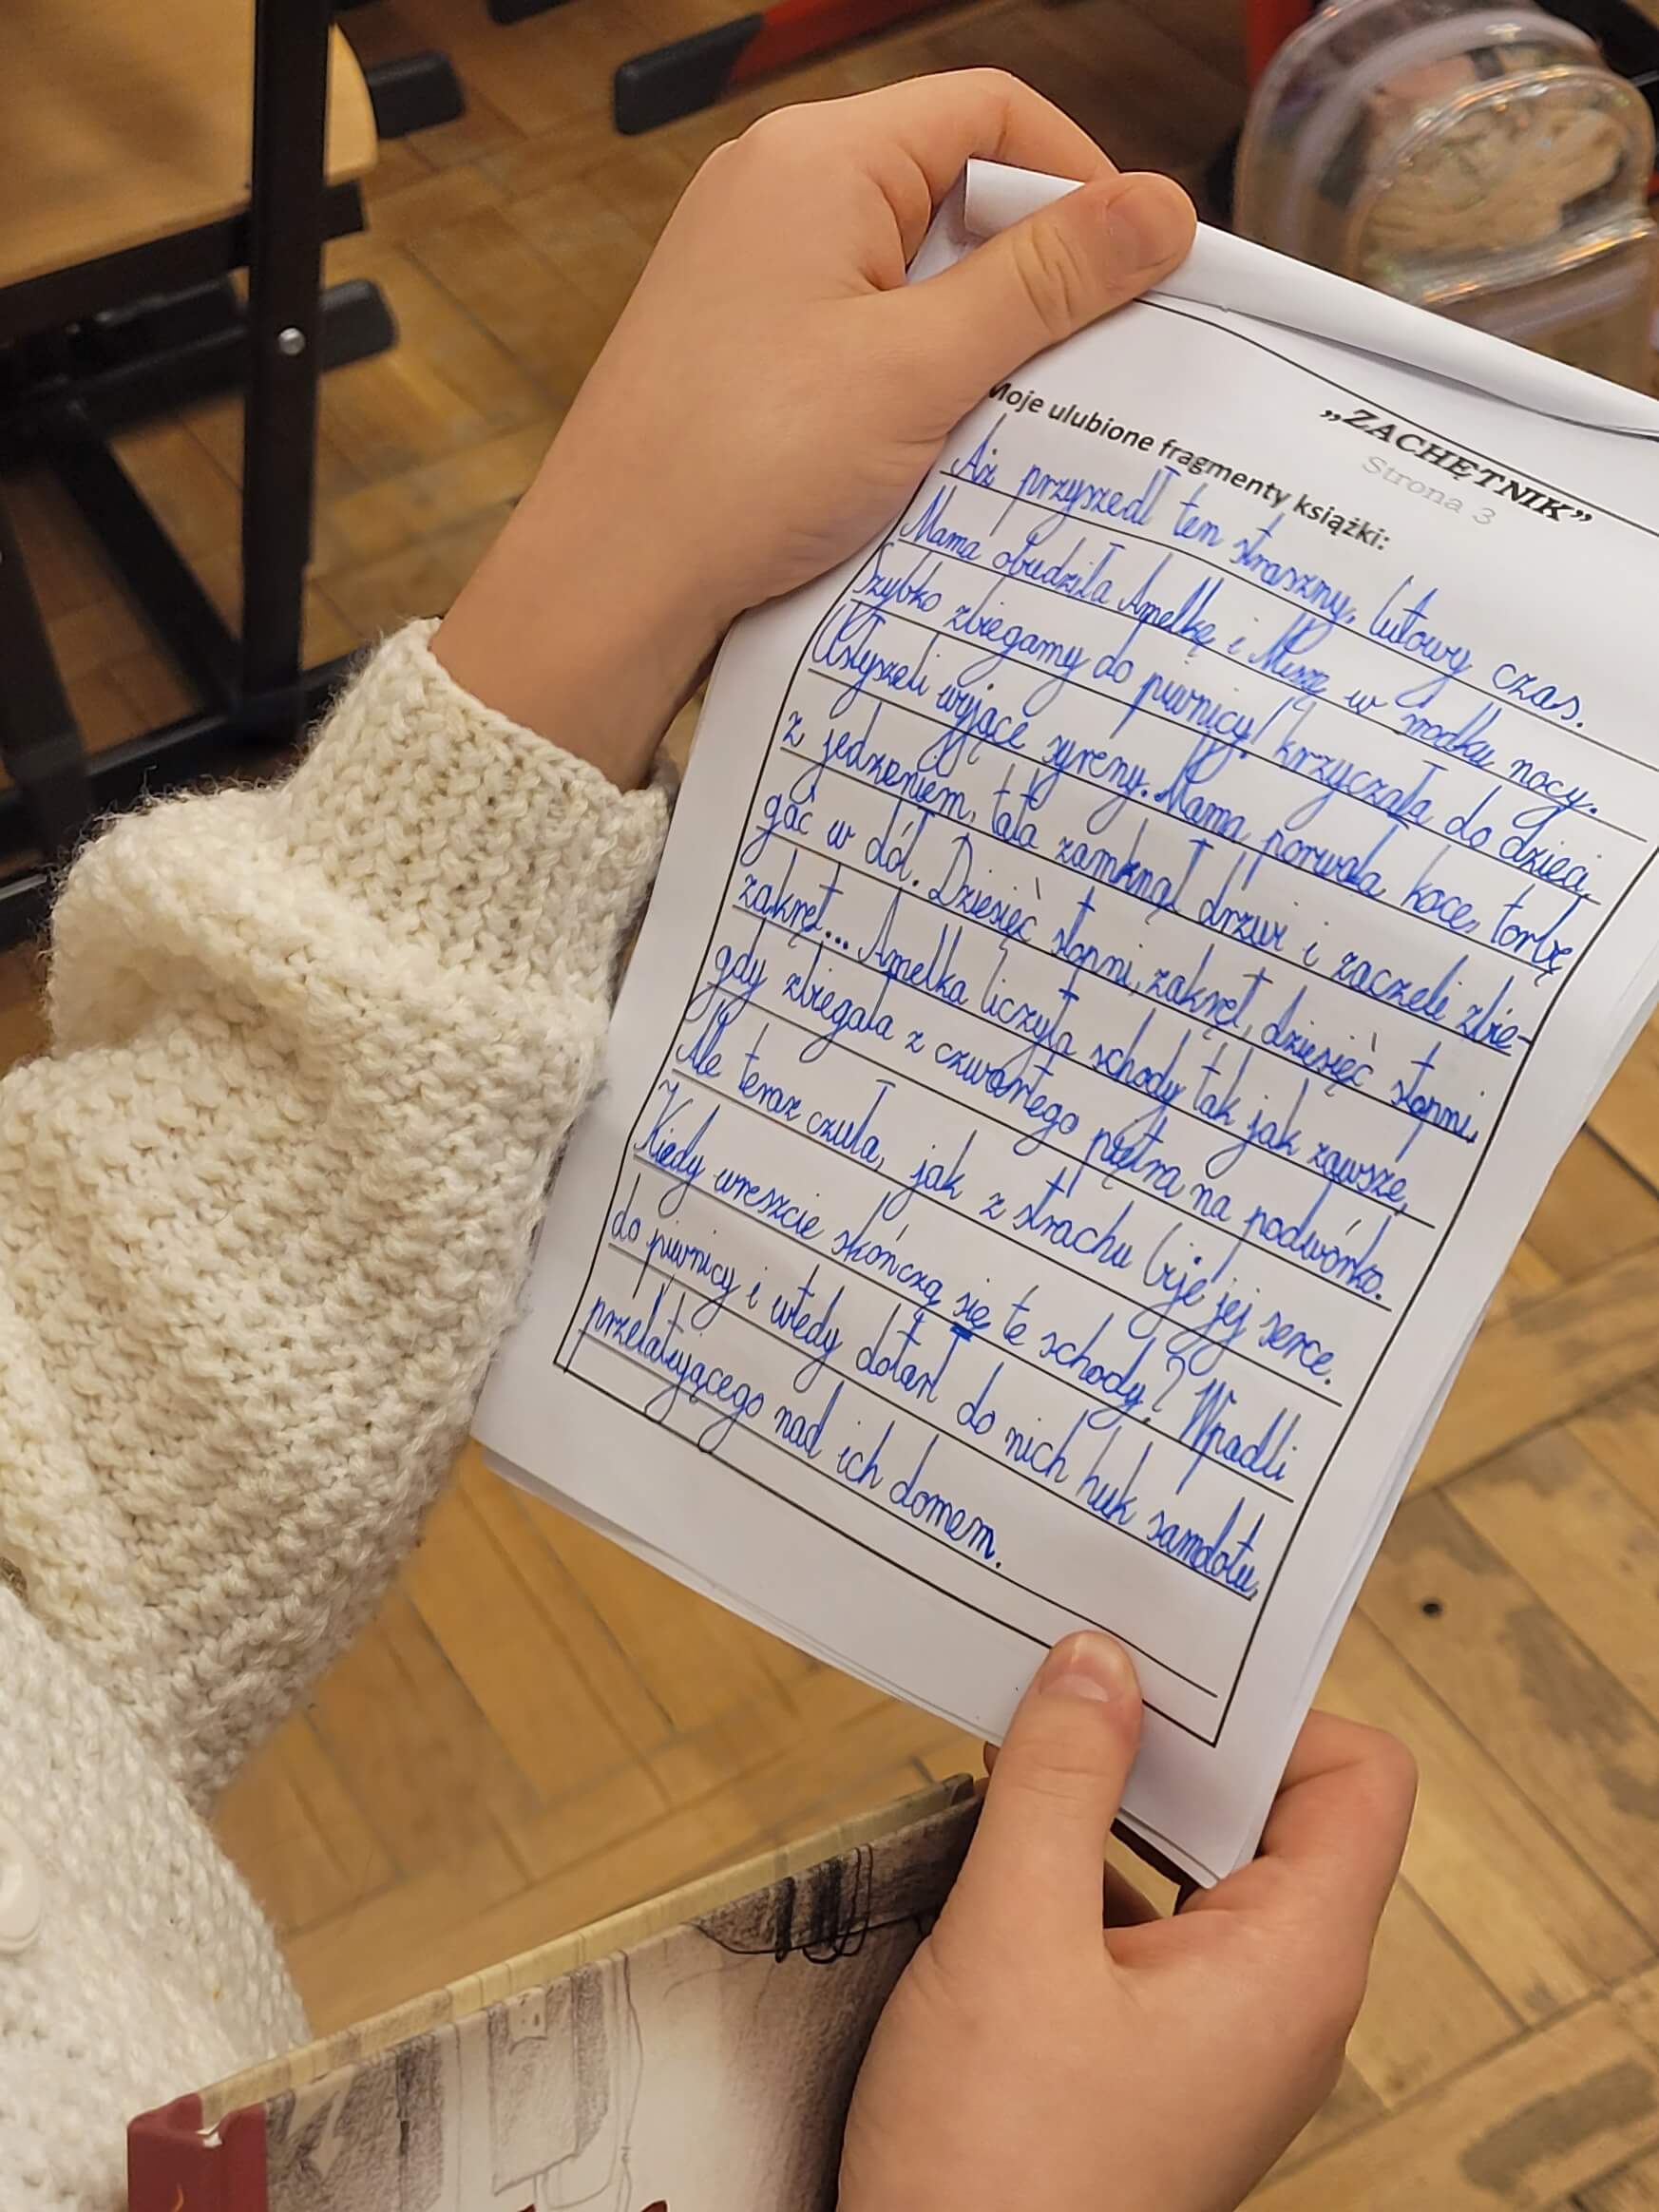 „ZACHĘTNIK”
Strona 3
Moje ulubione fragmenty książki:
Aż przyszedł ten straszny, lutowy czas.
Mama obudziła Amelkę i Miszę w środku nocy.
Szybko zbiegamy do piwnicy! krzyczała do dzieci.
Usłyszeli wyjące syreny. Mama porwała koce, torbę
z jedzeniem, tata zamknął drzwi i zaczeli zbie-
gać w dół. Dziesięć stopni, zakręt, dziesięć stopni,
zakręt... Amelka liczyła schody tak jak zawsze,
gdy zbiegała z czwartego piętra na podwórko.
Ale teraz czuła, jak z strachu bije jej serce.
Kiedy wreszcie skończą się te schody? Wpadli
do piwnicy i wtedy dotarł do nich huk samolotu,
przelatującego nad ich domem.